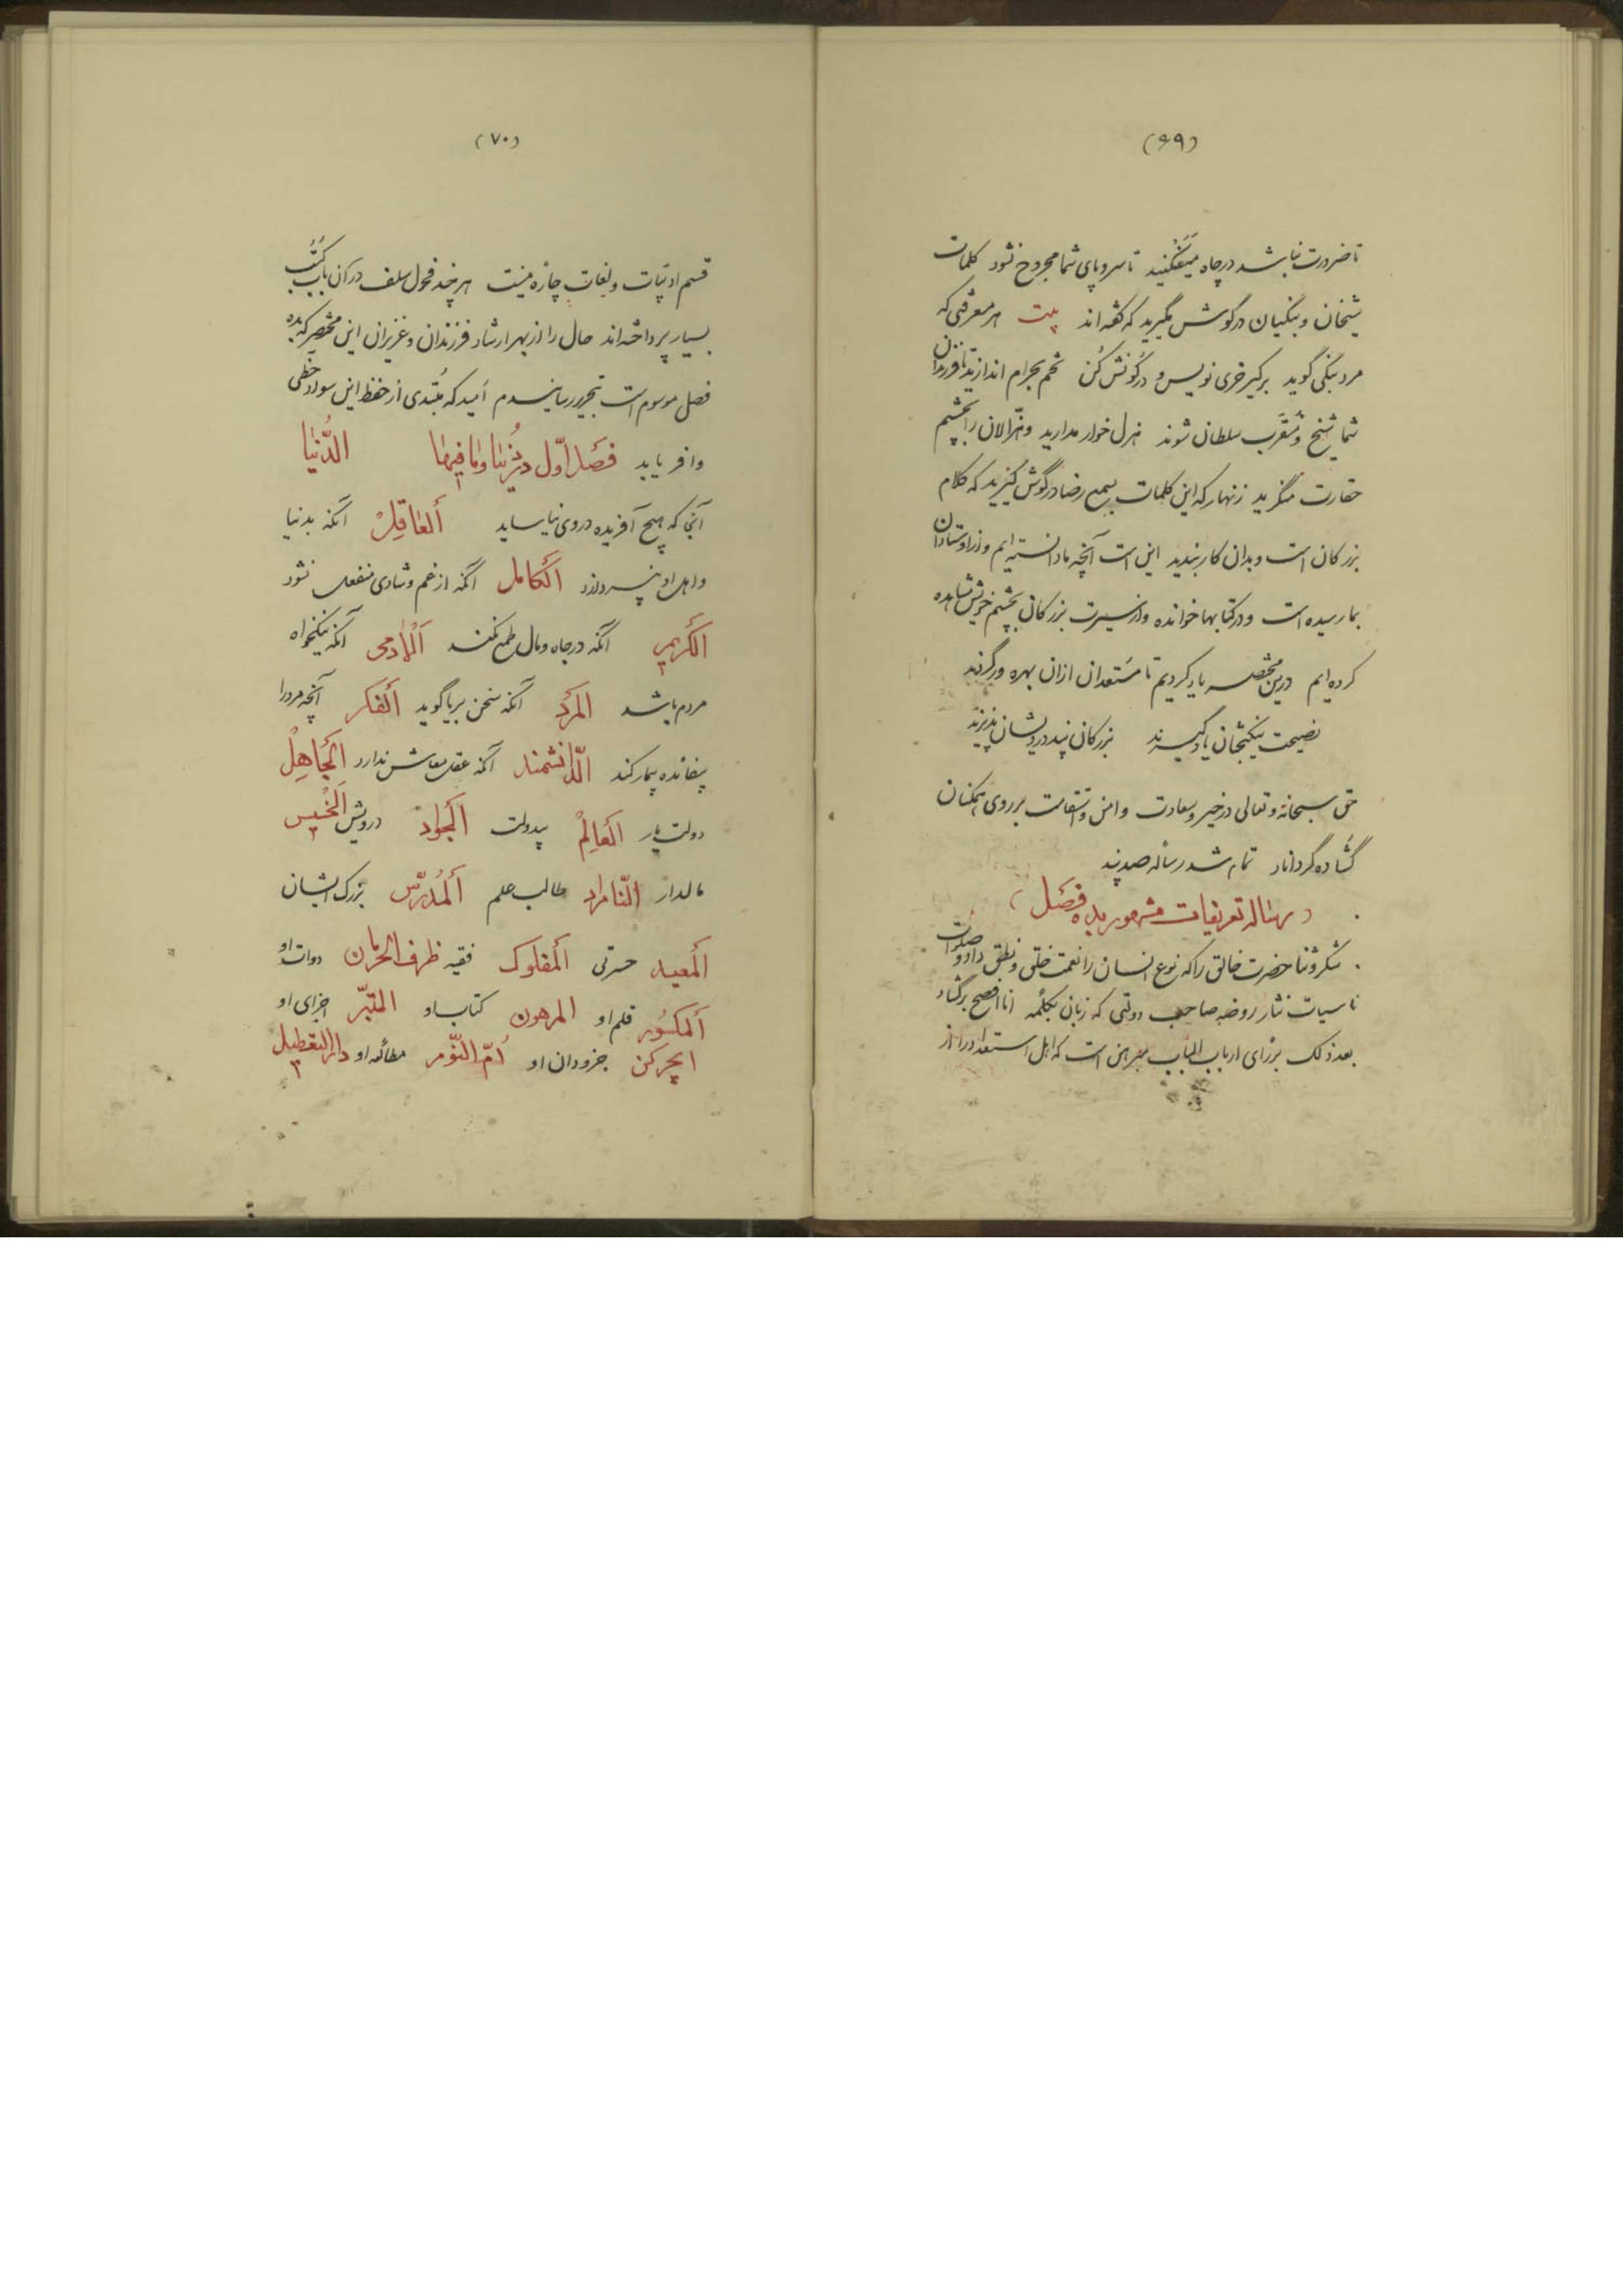 (۶۹)
تا ضرورت نباشد در چاه میفکنید تا سر و پای شما مجروح نشود کلمات
شیخان و بنگیان در گوش مگیرید که گفته‌اند بیت هر معرفتی که
مرد بنگی گوید بر کیر خری نویس و در کونش کن تخم بحرام اندازید تا فرزندان
شما شیخ و مقرب سلطان شوند هزل خوار مدارید و هزالان را بچشم
حقارت منگرید زنهار که این کلمات بسمع رضا در گوش گیرید که کلام
بزرگان است و بدان کار بندید این است آنچه ما دانسته‌ایم و از اوستادان
بما رسیده است و در کتابها خوانده و از سیرت بزرگان بچشم خویش مشاهده
کرده‌ایم درین مختصر یاد کردیم تا مستعدان ازان بهره ور گردند
نصیحت نیکبختان یاد گیرند بزرگان پند درویشان پذیرند
حق سبحانه و تعالی در خیر و سعادت و امن و استقامت بر روی همگنان
گشاده گرداناد تمام شد رساله صد پند
(رساله تعریفات مشهور بده فصل)
شکر و ثنا حضرت خالق را که نوع انسان را نعمت خلق و نطق داد و صلوات
نامیات نثار روضه صاحب دولتی که زبان بکلمه انا افصح برگشاد
بعد ذلک بر رای ارباب الباب مبرهن است که اهل استعداد را از
(۷۰)
قسم ادبیات و لغات چاره نیست هر چند فحول سلف در آن باب کتب
بسیار پرداخته‌اند حال را از بهر ارشاد فرزندان و عزیزان این مختصر که بده
فصل موسوم است بتحریر رسانیدم امید که مبتدی از حفظ این سواد حظی
وافر یابد فصل اوّل در دنیا و ما فیها الدّنیا
آنجا که هیچ آفریده در وی نیاساید ألعاقل آنکه بدنیا
و اهل او نپردازد ألکامل آنکه از غم و شادی منفعل نشود
الکریم آنکه در جاه و مال طمع نکند ألآدمی آنکه نیکخواه
مردم باشد المرد آنکه سخن بریا گوید ألفکر آنچه مرد را
بیفائده بیمار کند الدّانشمند آنکه عقل معاش ندارد ألجاهل
دولت یار ألعالم بیدولت ألجواد درویش ألخسیس
مالدار النّامراد طالب علم ألمدرّس بزرگ ایشان
ألمعید حسرتی ألمفلوک فقیه ظرف الحرمان دوات او
ألمکسور قلم او المرهون کتاب او المبتّر اجزای او
الچرکن جزودان او أمّ النّوم مطالعه او دارالتعطیل